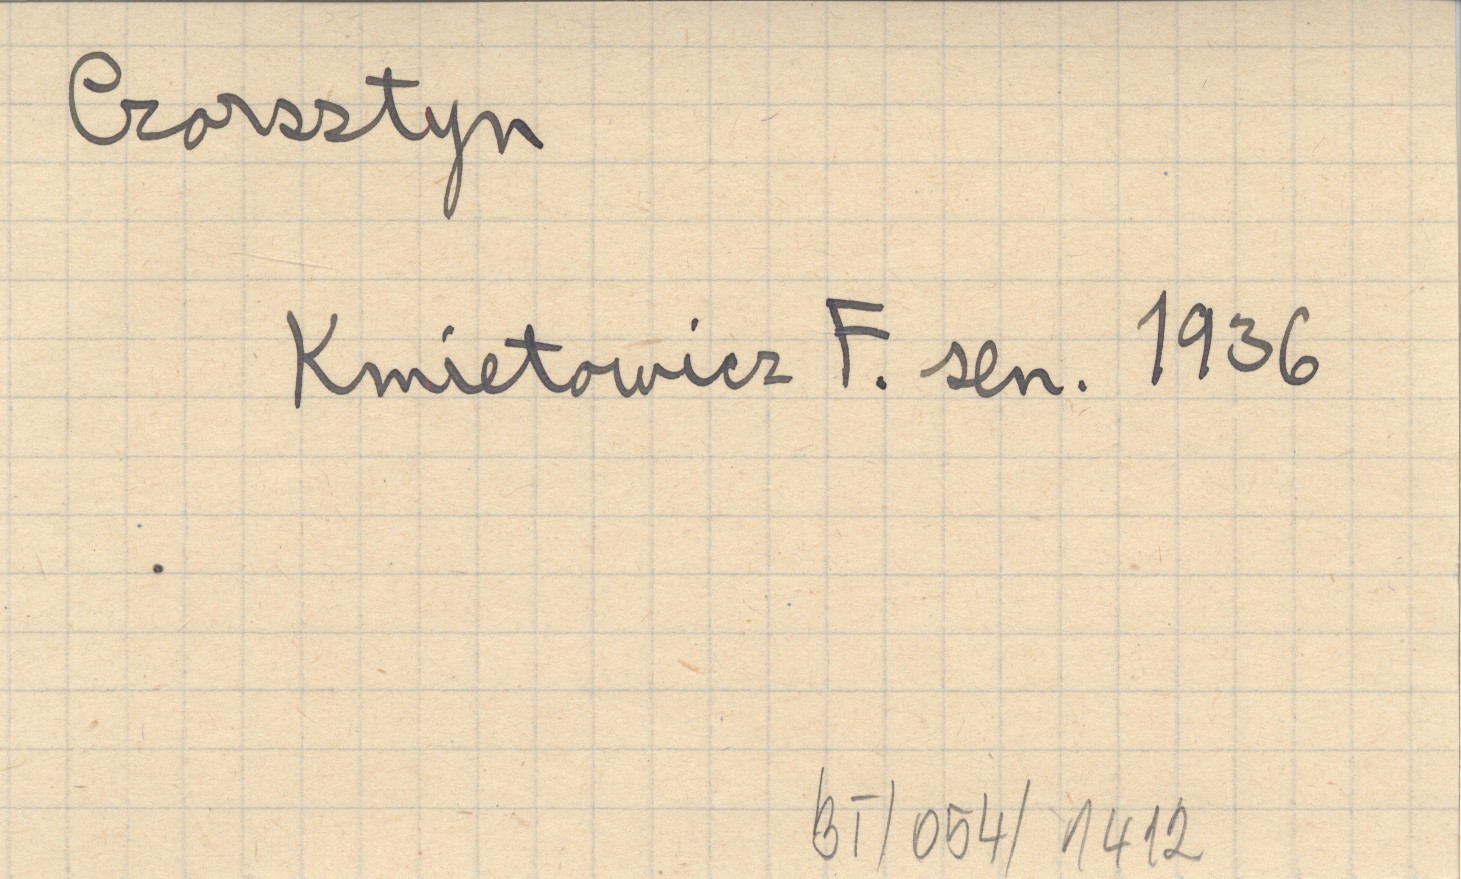 Czorsztyn
Kmietowicz F. sen. 1936
BT/054/1412